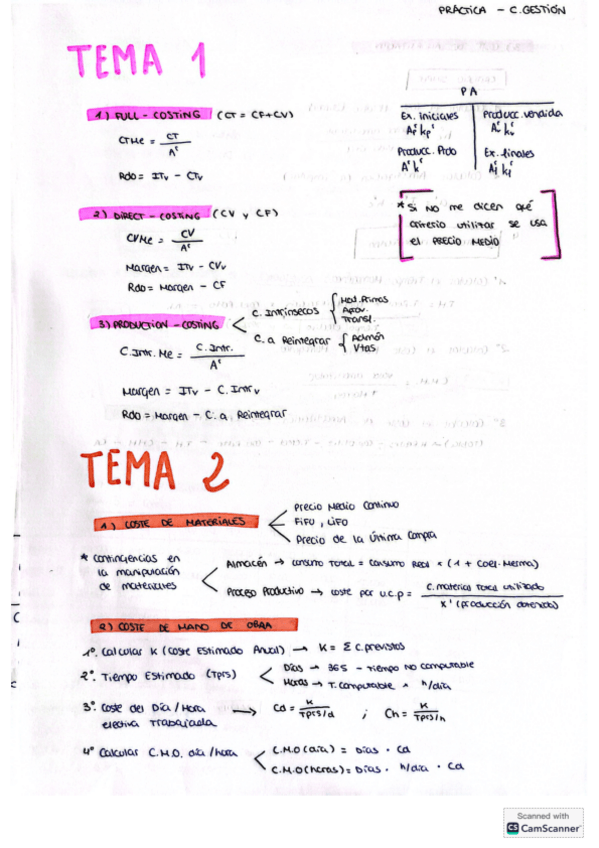 PRÁCTICA - C. GESTIÓN
TEMA 1
1) FULL - COSTING (CT = CF+CV)
CTMe = CT / A^t
Rdo = ITv - CTv
PA
Ex. Iniciales
Producc. vendida
Producc. Pdo
A^t k^t
Ex. finales
* Si NO me dicen qué
criterio utilizar se usa
el PRECIO MEDIO
2) DIRECT - COSTING (CV y CF)
CVMe = CV / A^t
Margen = ITv - CVv
Rdo = Margen - CF
3) PRODUCTION - COSTING
C. Intrínsecos
Mat. Primas
Aprov.
Transf.
C. a Reintegrar
Admón
Vtas.
C. Intr. Me = C. Intr. / A^t
Margen = ITv - C. Intr v
Rdo = Margen - C. a Reintegrar
TEMA 2
1) COSTE DE MATERIALES
Precio Medio Continuo
FIFO, LIFO
Precio de la Última Compra
* Contingencias en
la manipulación
de materiales
Almacén → Consumo Total = Consumo Real × (1 + Coef. Merma)
Proceso Productivo → coste por u.c.p = C. material total utilizado / x' (producción obtenida)
2) COSTE DE MANO DE OBRA
1º. Calcular K (Coste Estimado Anual) → K = Σ C. previstos
2º. Tiempo Estimado (Tprs)
Días → 365 - Tiempo No Computable
Horas → T. Computable × h/día
3º. Coste del Día / Hora
efectiva Trabajada
→ Cd = K / Tprs/d ; Ch = K / Tprs/h
4º Calcular C.M.O. día/hora
C.M.O (día) = Días · Cd
C.M.O (horas) = Días · h/día · Cd
Scanned with
CS CamScanner